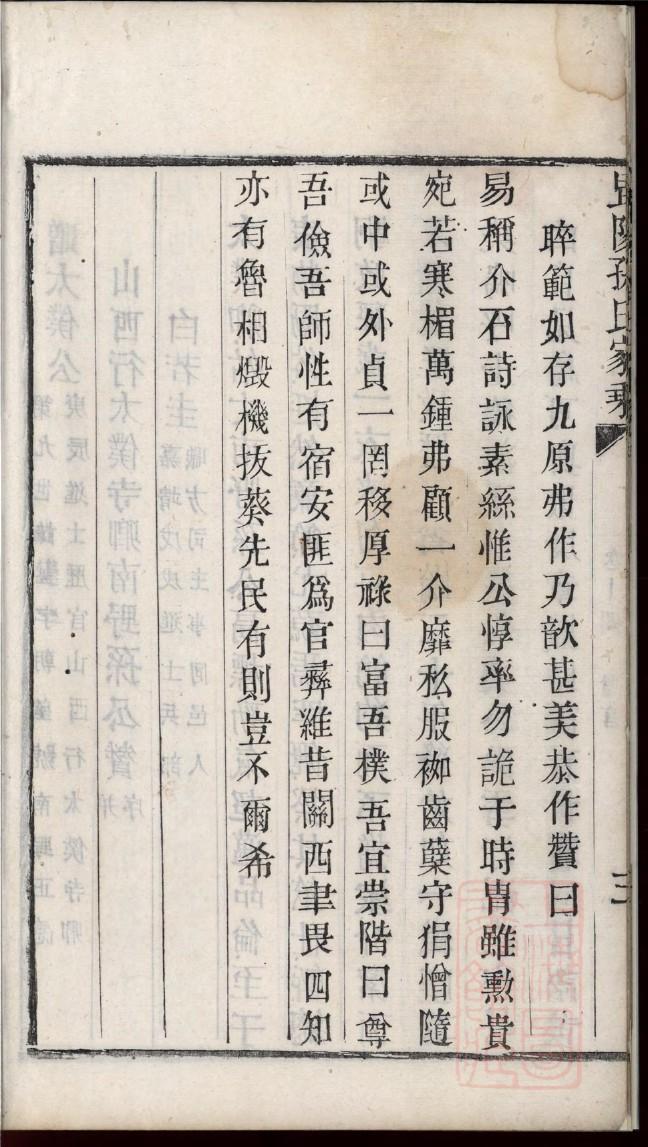 毘陵孫氏家乘
三
睟範如存九原弗作乃歆甚美恭作贊曰
易稱介石詩詠素絲惟公惇率勿詭于時冑雖勳貴
宛若寒楣萬鍾弗顧一介靡私服袽齒蘖守狷憎隨
或中或外貞一罔移厚祿曰富吾樸吾宜崇階曰尊
吾儉吾師性有宿安匪爲官彝維昔關西聿畏四知
亦有魯相燬機拔葵先民有則豈不爾希